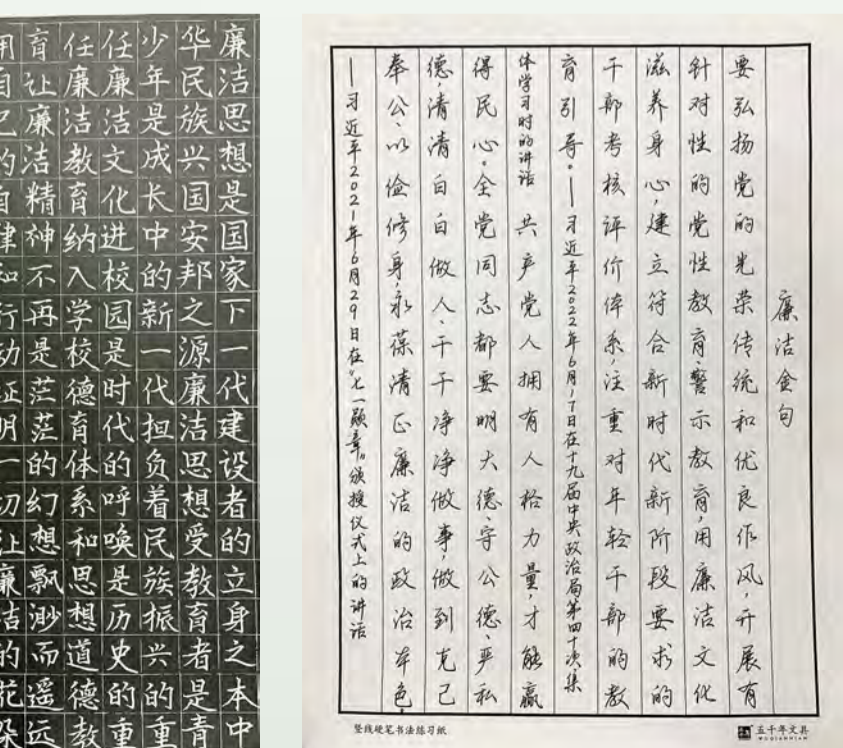 廉洁思想是国家下一代建设者的立身之本中
华民族兴国安邦之源廉洁思想受教育者是青
少年是成长中的新一代担负着民族振兴的重
任廉洁文化进校园是时代的呼唤是历史的重
任廉洁教育纳入学校德育体系和思想道德教
育让廉洁精神不再是茫茫的幻想飘渺而遥远
用自己的自律和行动证明一切让廉洁的花朵
廉洁金句
要弘扬党的光荣传统和优良作风,开展有
针对性的党性教育、警示教育,用廉洁文化
滋养身心,建立符合新时代新阶段要求的
干部考核评价体系,注重对年轻干部的教
育引导。—习近平2022年6月17日在十九届中央政治局第四十次集
体学习时的讲话 共产党人拥有人格力量才能赢
得民心。全党同志都要明大德、守公德、严私
德,清清白白做人、干干净净做事,做到克己
奉公、以俭修身,永葆清正廉洁的政治本色。
—习近平2021年6月29日在“七一勋章”颁授仪式上的讲话
竖线硬笔书法练习纸
五千年文具
WUQIANNIAN